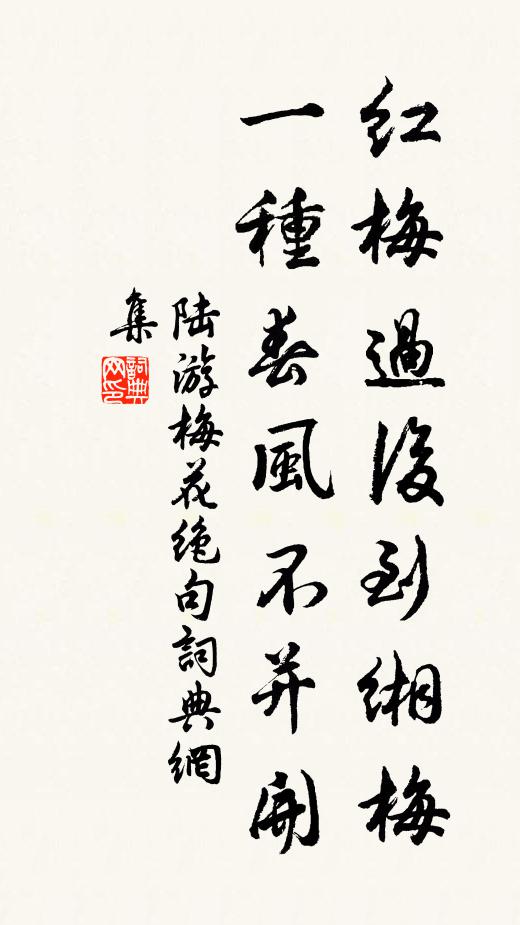 红梅過後到缃梅
一種春風不并開
陆游梅花绝句詞典網
集
詞典网印